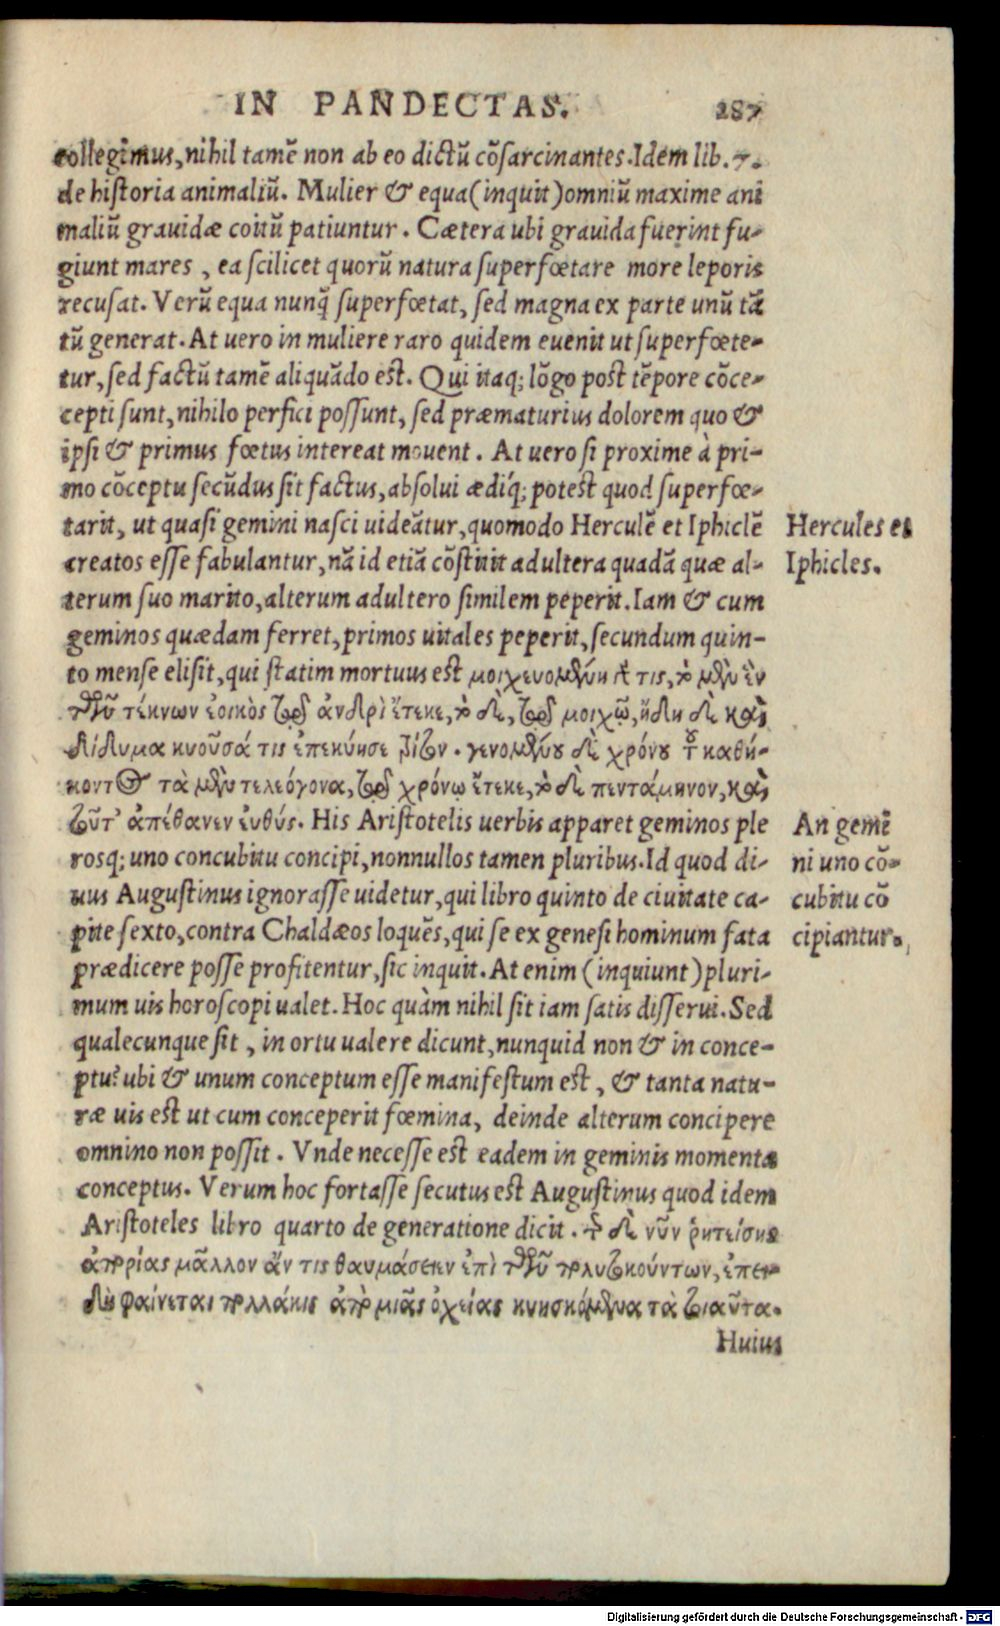 IN PANDECTAS. 287
collegimus, nihil tamẽ non ab eo dictũ cõsarcinantes. Idem lib. 7.
de historia animaliũ. Mulier & equa (inquit) omniũ maxime ani
maliũ grauidæ coitũ patiuntur. Cætera ubi grauida fuerint fu-
giunt mares, ea scilicet quorũ natura superfœtare more leporis
recusat. Verũ equa nunq̃ superfœtat, sed magna ex parte unũ tã
tũ generat. At uero in muliere raro quidem euenit ut superfœte-
tur, sed factũ tamẽ aliquãdo est. Qui itaq; lõgo post tẽpore cõce-
cepti sunt, nihilo perfici possunt, sed præmaturius dolorem quo &
ipsi & primus fœtus intereat mouent. At uero si proxime à pri-
mo cõceptu secũdus sit factus, absolui ædiq́; potest quod superfœ-
tarit, ut quasi gemini nasci uideãtur, quomodo Herculẽ et Iphiclẽ
Hercules et
creatos esse fabulantur, nã id etiã cõstitit adultera quadã quæ al-
Iphicles.
terum suo marito, alterum adultero similem peperit. Iam & cum
geminos quædam ferret, primos uitales peperit, secundum quin-
to mense elisit, qui statim mortuus est μοιχευομένη δέ τις, τὸ μὲν ἓν
τῶν τέκνων ἐοικὸς τῷ ἀνδρὶ ἔτεκε, τὸ δὲ, τῷ μοιχῷ, ἤδη δὲ καὶ
δίδυμα κυοῦσά τις ἐπεκύησε τρίτον. γενομένου δὲ χρόνου τοῦ καθή-
κοντος τὰ μὲν τελεόγονα, τῷ χρόνῳ ἔτεκε, τὸ δὲ πεντάμηνον, καὶ
τοῦτ' ἀπέθανεν εὐθύς. His Aristotelis uerbis apparet geminos ple
An gemi
rosq; uno concubitu concipi, nonnullos tamen pluribus. Id quod di-
ni uno cõ-
uus Augustinus ignorasse uidetur, qui libro quinto de ciuitate ca-
cubitu cõ
pite sexto, contra Chaldæos loquẽs, qui se ex genesi hominum fata
cipiantur.
prædicere posse profitentur, sic inquit. At enim (inquiunt) pluri-
mum uis horoscopi ualet. Hoc quàm nihil sit iam satis disserui. Sed
qualecunque sit, in ortu ualere dicunt, nunquid non & in conce-
ptu? ubi & unum conceptum esse manifestum est, & tanta natu-
ræ uis est ut cum conceperit fœmina, deinde alterum concipere
omnino non possit. Vnde necesse est eadem in geminis momenta
conceptus. Verum hoc fortasse secutus est Augustinus quod idem
Aristoteles libro quarto de generatione dicit. τῆς δὲ νῦν ῥητείσης
ἀπορίας μᾶλλον ἄν τις θαυμάσειεν ἐπὶ τῶν πολυτοκούντων, ἐπει-
δὴ φαίνεται πολλάκις ἀπὸ μιᾶς ὀχείας κυησκόμενα τὰ τοιαῦτα.
Huius
Digitalisierung gefördert durch die Deutsche Forschungsgemeinschaft - DFG